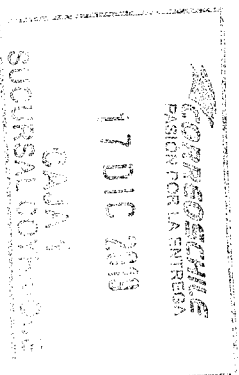 CORREOSCHILE
PASION POR LA ENTREGA
17 DIC 2019
CAJA 1
SUCURSAL